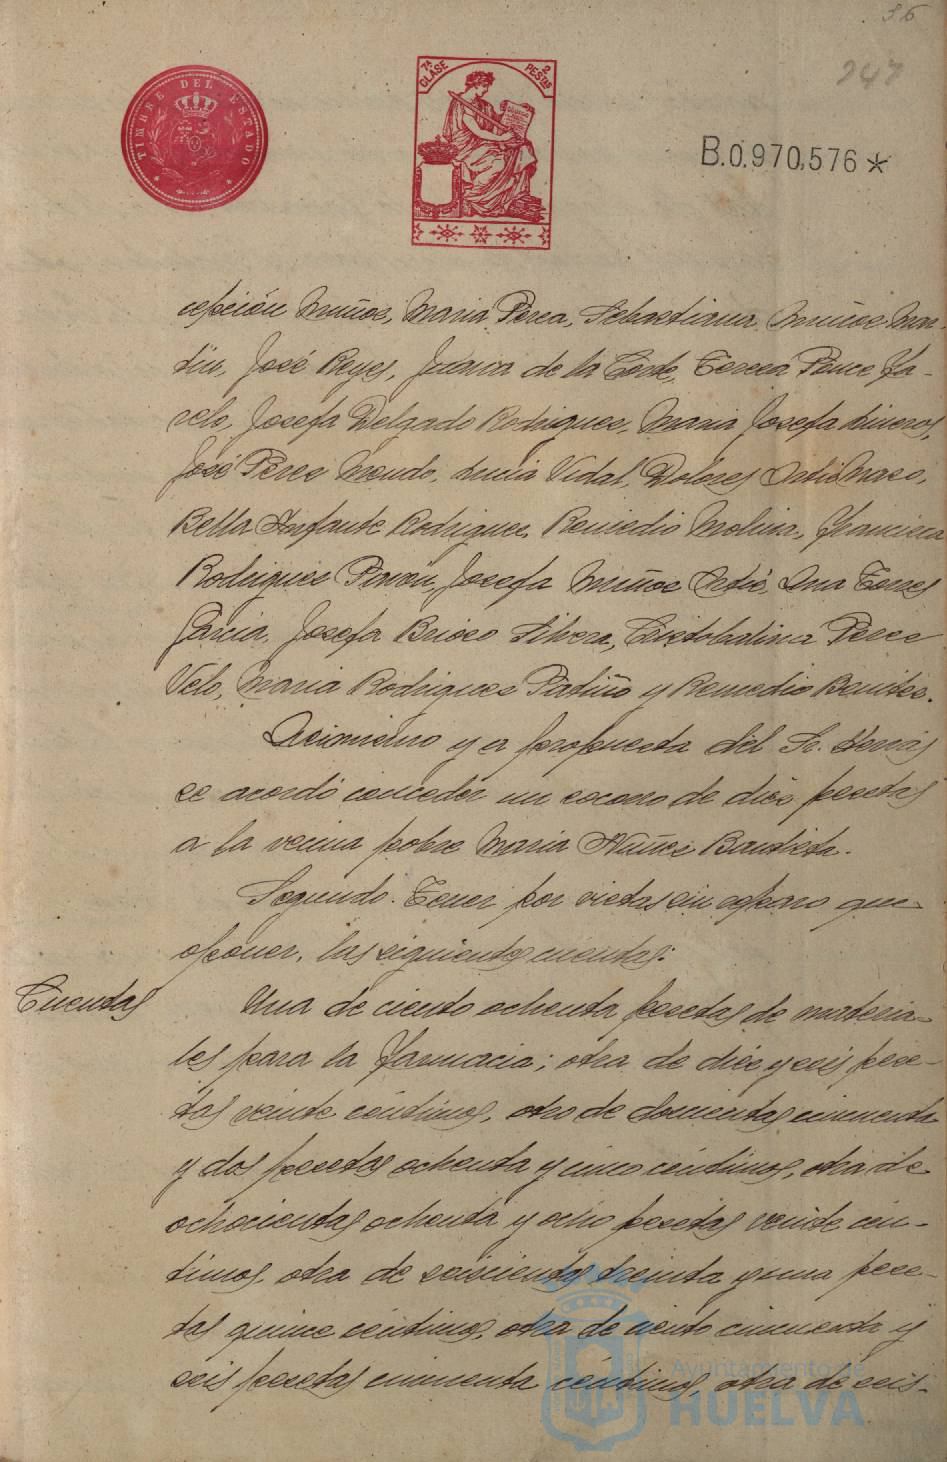 36
247
TIMBRE DEL ESTADO
7ª CLASE
2 PESTAS
B.0,970,576*
cepción Muñoz, Maria Perea, Sebastiana Muñoz Mar-
tin, José Reyes, Juana de la Corte, Teresa Ponce Ya-
velo, Josefa Delgado Rodriguez, Maria Josefa Liveros,
José Perez Mendo, Lucia Vidal, Dolores Ortiz Mazo,
Bella Infante Rodriguez, Remedio Molina, Francisca
Rodriguez Pinzón, Josefa Muñoz Ortiz, Ana Torres
Garcia, Josefa Brioso, Cristobalina Perez
Velo, Maria Rodriguez Patiño y Remedio Benitez.
Asimismo y a propuesta del Sr.
se acordó conceder un socorro de diez pesetas
a la vecina pobre Maria Nuñez Bautista.
Segundo. Tener por vistas sin reparo que
oponer, las siguientes cuentas:
Cuentas
Una de ciento ochenta pesetas de materia-
les para la farmacia; otra de diez y seis pese-
tas veinte céntimos, otra de doscientas cincuenta
y dos pesetas ochenta y cinco céntimos, otra de
ochocientas ochenta y ocho pesetas veinte cén-
timos, otra de seiscientas treinta y una pese-
tas quince céntimos, otra de ciento cincuenta y
seis pesetas cincuenta céntimos, otra de seis-
Ayuntamiento de
HUELVA